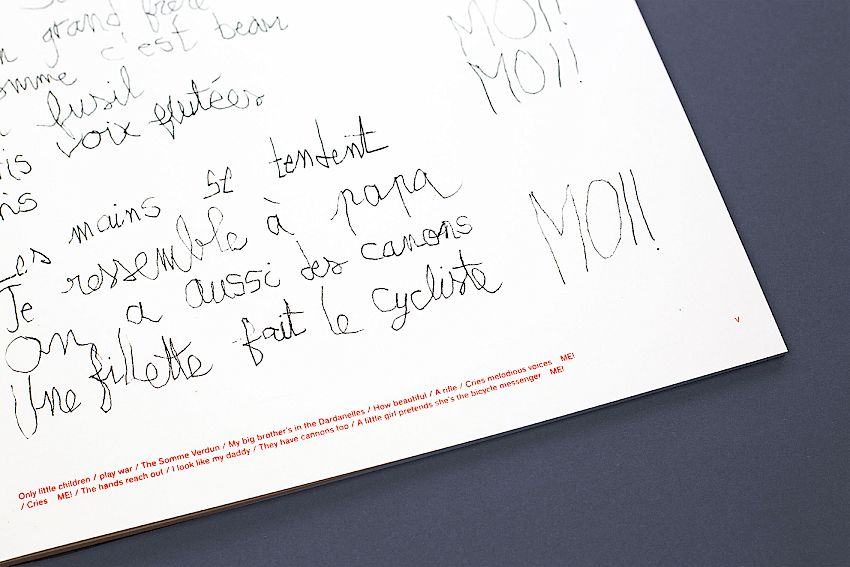 grand frère
comme c'est beau
fusil
voix flutées
MOI!
MOI!
Les mains se tendent
Je ressemble à papa
On a aussi des canons
Une fillette fait le cycliste
MOI!
V
Only little children / play war / The Somme Verdun / My big brother's in the Dardanelles / How beautiful / A rifle / Cries melodious voices ME!
/ Cries ME! / The hands reach out / I look like my daddy / They have cannons too / A little girl pretends she's the bicycle messenger ME!